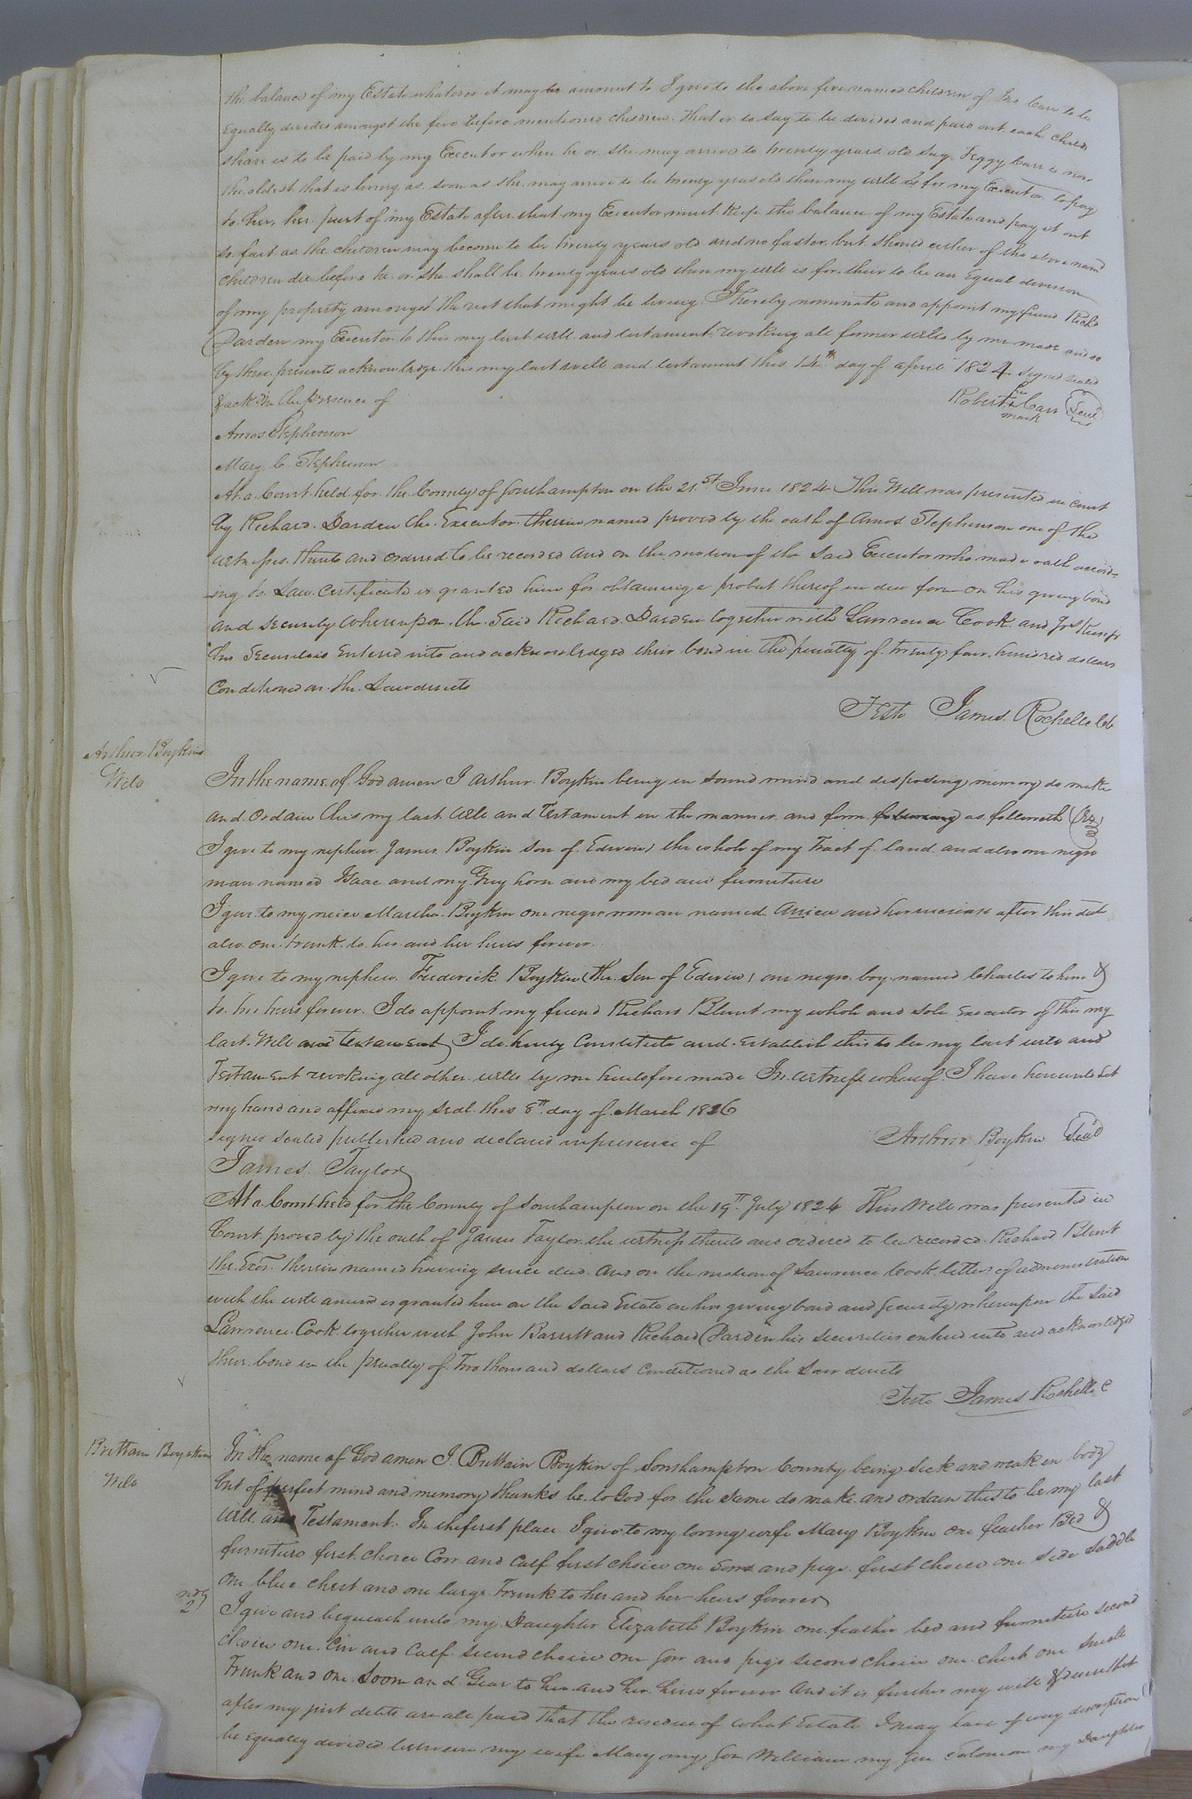 the balance of my Estate whatever it may be amount to I give to the above five named children of Carr to be
Equally divided amongst the five before mentioned children. That is to say to be divided and paid out each childs
share is to be paid by my Executor when he or she may arrive to twenty years old say Peggy Carr is now
the oldest that is living as soon as she may arrive to be twenty years old then my will is for my Executor to pay
to her, her part of my Estate after that my Executor must keep the balance of my Estate and pay it out
so fast as the children may become to be twenty years old and no faster, but should either of the above named
children die before he or she shall be twenty years old then my will is for their to be an Equal division
of my property amongst the rest that might be living. I hereby nominate and appoint my friend Richd
Darden my Executor to this my last will and testament revoking all former wills by me made and do
by these presents acknowledge this my last will and testament this 14th day of april 1824 Signed Seald
& ack in the presence of
Robert his Carr Seal
mark
Amos Stephenson
Mary C Stephenson
At a Court held for the County of Southampton on the 21st June 1824 This Will was presented in court
by Richard Darden the Executor therein named proved by the oath of Amos Stephenson one of the
witnesses thereto and ordered to be recorded and on the motion of the said Executor who made oath accord-
ing to Law certificate is granted him for obtaining a probat thereof in due form on his giving bond
and security whereupon the Said Richard Darden together with Lawrence Cook and
his Securities Entered into and acknowledged their bond in the penalty of twenty four hundred dollars
Conditioned as the Law directs
Teste James Rochelle Clk
Arthur Boykins
Will
In the name of God amen I Arthur Boykin being in sound mind and disposing memory do make
and ordain this my last Will and Testament in the manner and form following as followeth (Viz)
I give to my nephew James Boykin son of Edwin, the whole of my Tract of land and also one negro
man named Isaac and my Grey horse and my bed and furniture
I give to my neice Martha Boykin one negro woman named and her increase after this date
also one trunk to her and her heirs forever.
I give to my nephew Frederick Boykin (the Son of Edwin) one negro boy named Charles to him &
to his heirs forever. I do appoint my friend Richard Blunt my whole and sole Executor of this my
last Will and testament, I do hereby Constitute and establish this to be my last will and
Testament revoking all other wills by me heretofore made In witness whereof I have hereunto set
my hand and affixed my seal this 8th day of March 1816
Signed sealed published and declared in presence of
Arthur Boykin Seal
James Taylor
At a Court held for the County of Southampton on the 19th July 1824 This Will was presented in
Court proved by the oath of James Taylor the witness thereto and ordered to be recorded. Richard Blunt
the Exor. therein named having since died and on the motion of Lawrence Cook letters of administration
with the will annexed is granted him on the said Estate on his giving bond and Security whereupon the said
Lawrence Cook together with John Barrett and Richard Darden his securities entered into and acknowledged
their bond in the penalty of Two thousand dollars Conditioned as the Law directs
Teste James Rochelle C
Brittain Boykins
Will
In the name of God amen I Brittain Boykin of Southampton County being sick and weak in body
but of perfect mind and memory thanks be to God for the same do make and ordain this to be my last
will and Testament. In the first place I give to my loving wife Mary Boykin one feather Bed &
furniture first choice Cow and calf first choice one Sow and pigs first choice one side saddle
one blue chest and one large Trunk to her and her heirs forever
ndly
2
I give and bequeath unto my Daughter Elizabeth Boykin one feather bed and furniture second
choice one Cow and Calf second choice one Sow and pigs second choice one chest one small
Trunk and one Loom and Gear to her and her heirs forever And it is further my will & desire that
after my just debts are all paid that the residue of what Estate I may have of every description
be equally divided between my wife Mary my Son William my Son Solomon my Daughter